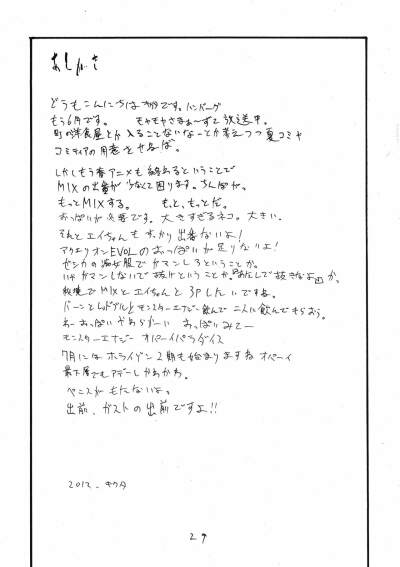 あとがき
どうもこんにちは です。ハンバーグ
もう6月です。 もやもやさまぁ～ずで放送中。
町の洋食屋とか入ることないなーとか考えつつ夏コミや
コミティアの用意を せねば。
しかしもう春アニメも終わるということで
MIXの出番が少なくて困ります。ちんぽが。
もっとMIXする。 もっと、もっとだ。
おっぱいが です。大きすぎるネコ。大きい。
それとエイちゃんも 出番ないよ!
アクエリオンEVOLのおっぱいが足りないよ!
ゼシカの 服でガマンしろということか。
いやガマンしないで抜けということか。 抜きなよ か、
MIXとエイちゃんと3Pしたいですね。
ドーンと モンスターエナジー飲んで 二人に飲んでもらおう。
おーおっぱいやわらかーい おっぱいみてー
モンスターエナジー オパーイパラダイス
7月にはホライゾン2期も始まりますね オパーイ
最下層でもアデーレかわかわ。
ペニスがもたないよ。
出前、ガストの出前ですよ!!
2012.
29